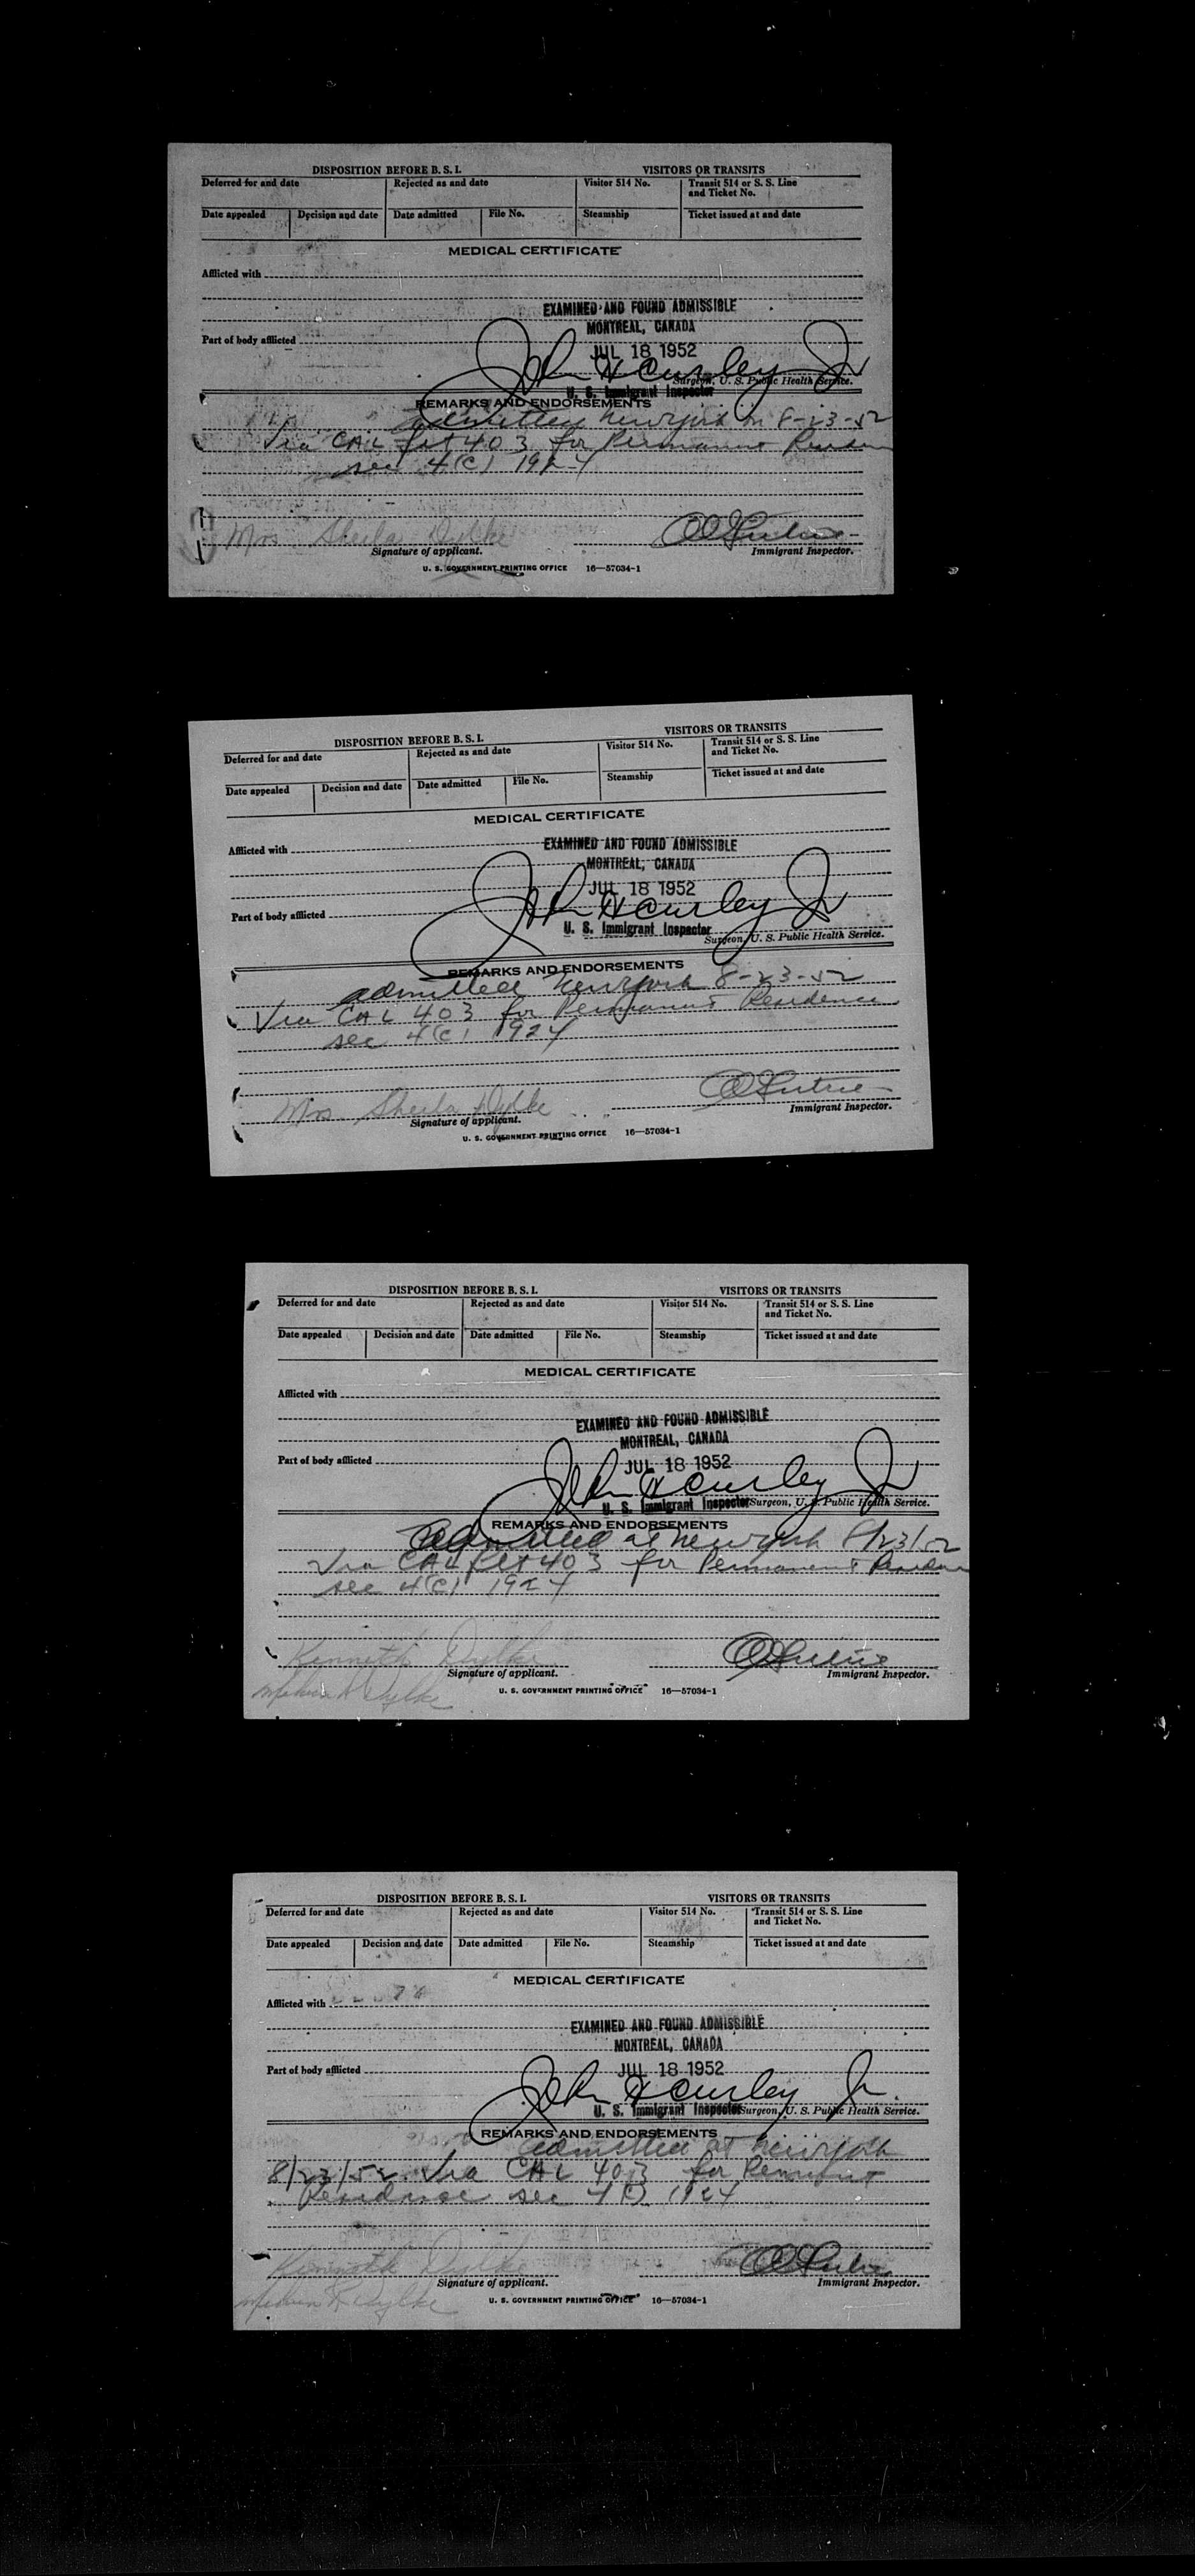 DISPOSITION BEFORE B. S. I. VISITORS OR TRANSITS
Deferred for and date Rejected as and date Visitor 514 No. Transit 514 or S. S. Line and Ticket No.
Date appealed Decision and date Date admitted File No. Steamship Ticket issued at and date
MEDICAL CERTIFICATE
Afflicted with
EXAMINED AND FOUND ADMISSIBLE
MONTREAL, CANADA
Part of body afflicted
JUL 18 1952
John H Curley Jr
Surgeon, U. S. Public Health Service.
U. S. Immigrant Inspector
REMARKS AND ENDORSEMENTS
admitted New York on 8-23-52
Via CAL flt 403 for Permanent
sec 4(c) 1924
Mrs Sheila Dylke
Signature of applicant. Immigrant Inspector.
U. S. GOVERNMENT PRINTING OFFICE 16—57034-1
DISPOSITION BEFORE B. S. I. VISITORS OR TRANSITS
Deferred for and date Rejected as and date Visitor 514 No. Transit 514 or S. S. Line and Ticket No.
Date appealed Decision and date Date admitted File No. Steamship Ticket issued at and date
MEDICAL CERTIFICATE
Afflicted with
EXAMINED AND FOUND ADMISSIBLE
MONTREAL, CANADA
JUL 18 1952
Part of body afflicted
John H Curley Jr
U. S. Immigrant Inspector
Surgeon, U. S. Public Health Service.
REMARKS AND ENDORSEMENTS
admitted New York 8-23-52
Via CAL 403 for Permanent Residence
sec 4(c) 1924
Mrs Sheila Dylke
Signature of applicant. Immigrant Inspector.
U. S. GOVERNMENT PRINTING OFFICE 16—57034-1
DISPOSITION BEFORE B. S. I. VISITORS OR TRANSITS
Deferred for and date Rejected as and date Visitor 514 No. Transit 514 or S. S. Line and Ticket No.
Date appealed Decision and date Date admitted File No. Steamship Ticket issued at and date
MEDICAL CERTIFICATE
Afflicted with
EXAMINED AND FOUND ADMISSIBLE
MONTREAL, CANADA
Part of body afflicted
JUL 18 1952
John H Curley Jr
U. S. Immigrant Inspector Surgeon, U. S. Public Health Service.
REMARKS AND ENDORSEMENTS
Admitted at New York 8/23/52
Via CAL flt 403 for Permanent
sec 4(c) 1924
Kenneth Dylke
Signature of applicant. Immigrant Inspector.
Dylke
U. S. GOVERNMENT PRINTING OFFICE 16—57034-1
DISPOSITION BEFORE B. S. I. VISITORS OR TRANSITS
Deferred for and date Rejected as and date Visitor 514 No. Transit 514 or S. S. Line and Ticket No.
Date appealed Decision and date Date admitted File No. Steamship Ticket issued at and date
MEDICAL CERTIFICATE
Afflicted with
EXAMINED AND FOUND ADMISSIBLE
MONTREAL, CANADA
Part of body afflicted
JUL 18 1952
John H Curley Jr.
U. S. Immigrant Inspector Surgeon, U. S. Public Health Service.
REMARKS AND ENDORSEMENTS
admitted at New York
8/23/52 Via CAL 403 for
Residence sec 4(c) 1924
Kenneth Dylke
Signature of applicant. Immigrant Inspector.
Dylke
U. S. GOVERNMENT PRINTING OFFICE 16—57034-1